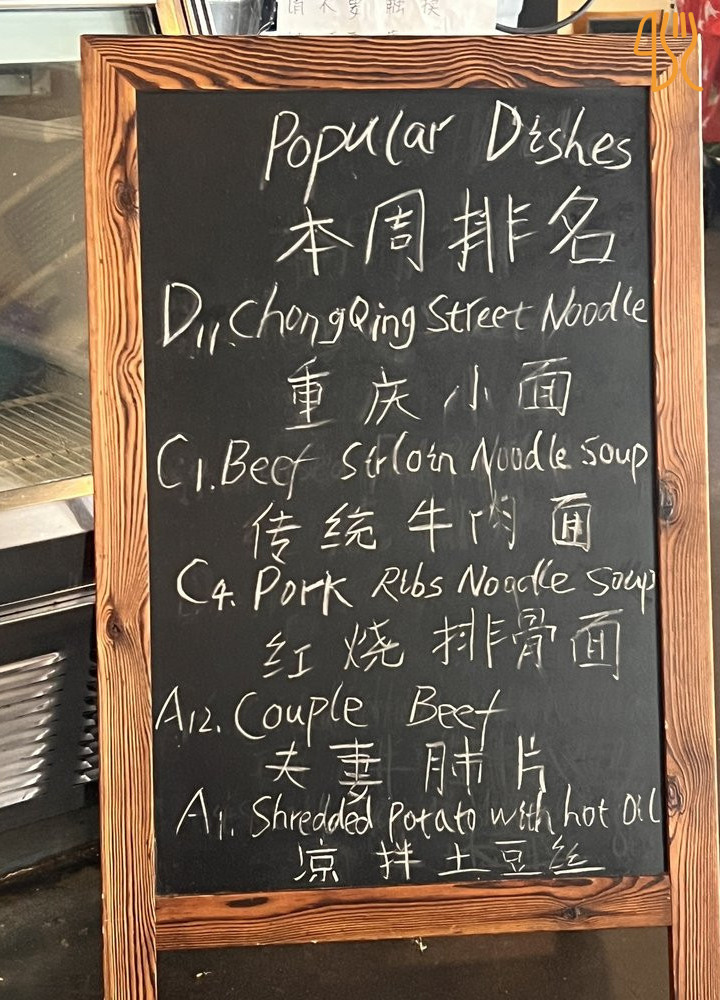 请不要触摸
Popular Dishes
本周排名
D11. ChongQing Street Noodle
重庆小面
C1. Beef Sirloin Noodle Soup
传统牛肉面
C4. Pork Ribs Noodle Soup
红烧排骨面
A12. Couple Beef
夫妻肺片
A1. Shredded potato with hot oil
凉拌土豆丝